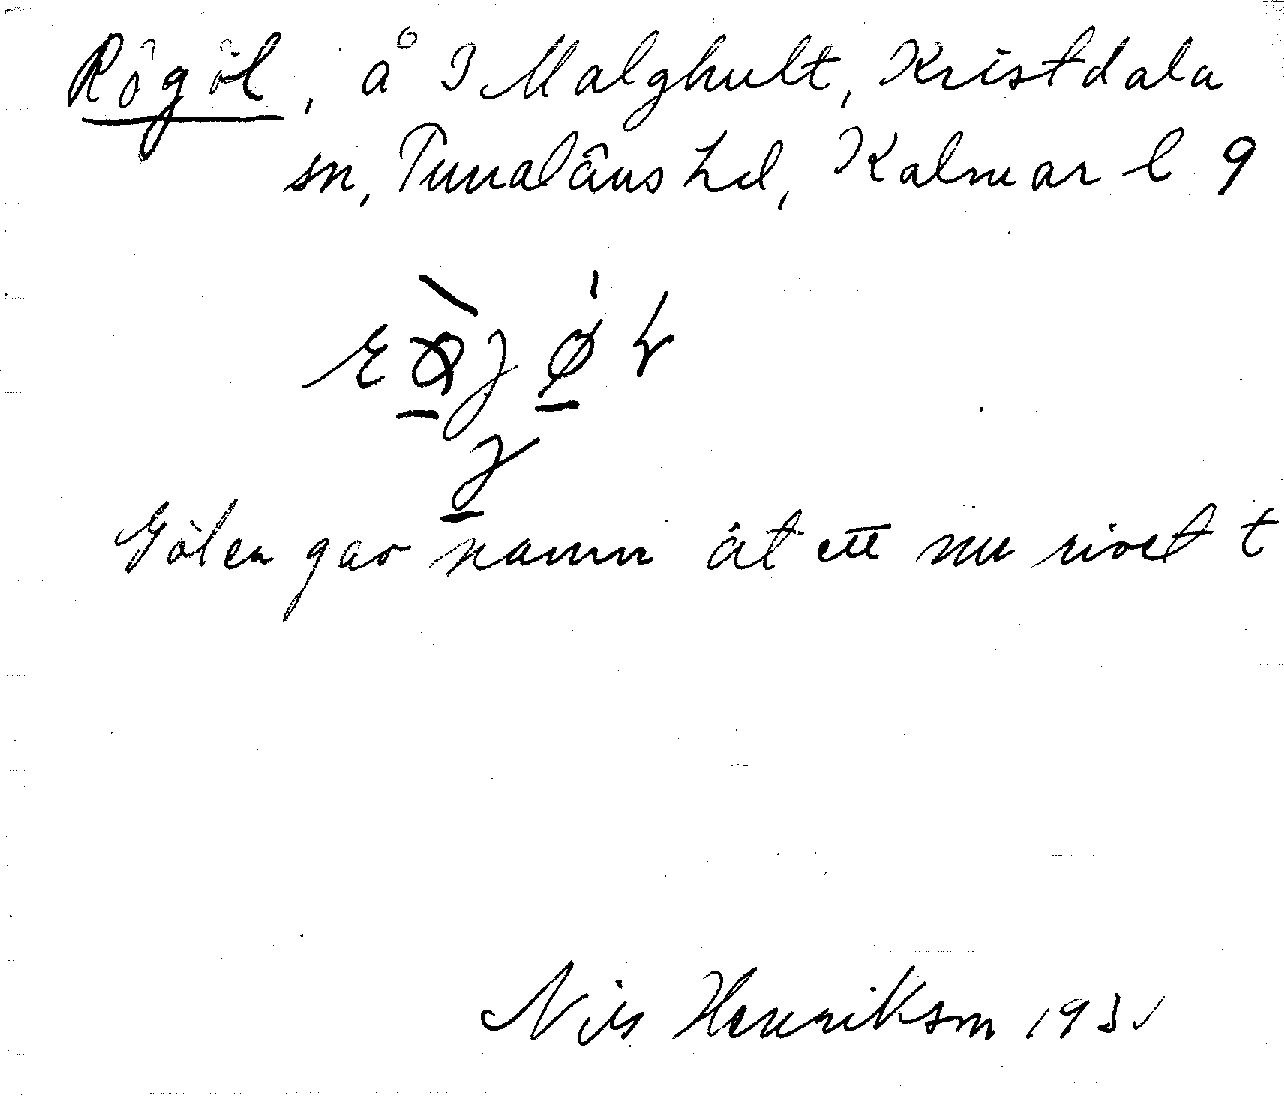 Rögöl, å 3 Malghult, Kristdala
sn, Tunaläns hd, Kalmar l 9
Gölen gav namn åt ett nu rivet t
Nils Henriksson 1931